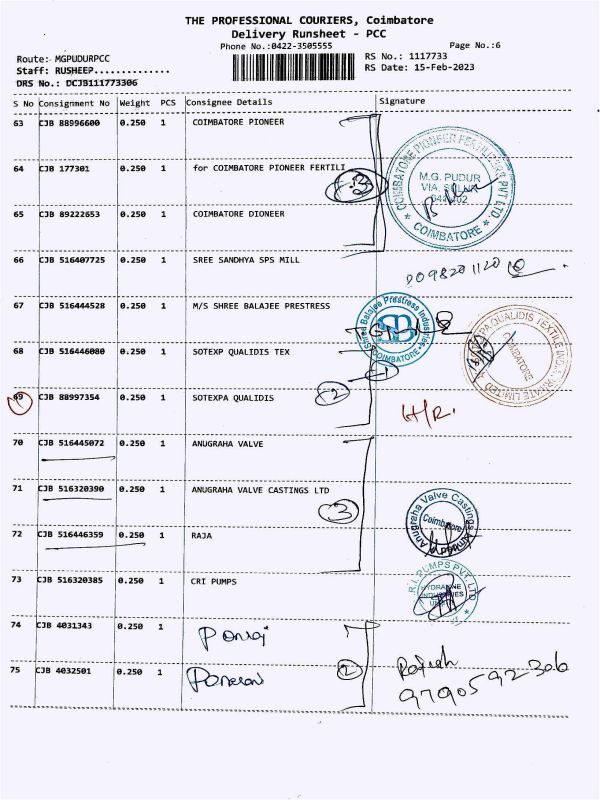 THE PROFESSIONAL COURIERS, Coimbatore
Delivery Runsheet - PCC
Phone No.:0422-3505555 Page No.:6
Route: MGPUDURPCC RS No.: 1117733
Staff: RUSHEEP.............. RS Date: 15-Feb-2023
DRS No.: DCJB111773306
S No Consignment No Weight PCS Consignee Details Signature
63 CJB 88996600 0.250 1 COIMBATORE PIONEER
64 CJB 177301 0.250 1 for COIMBATORE PIONEER FERTILI
COIMBATORE PIONEER FERTILIZERS PVT LTD.
M.G. PUDUR
VIA, SULUR
641402
* COIMBATORE *
65 CJB 89222653 0.250 1 COIMBATORE DIONEER
66 CJB 516407725 0.250 1 SREE SANDHYA SPS MILL
67 CJB 516444528 0.250 1 M/S SHREE BALAJEE PRESTRESS
Shree Balajee Prestress Industries
COIMBATORE
68 CJB 516446080 0.250 1 SOTEXP QUALIDIS TEX
1
QUALIDIS TEXTILE IND. PRIVATE LIMITED
COIMBATORE
69 CJB 88997354 0.250 1 SOTEXPA QUALIDIS 2 H/R.
70 CJB 516445072 0.250 1 ANUGRAHA VALVE
71 CJB 516320390 0.250 1 ANUGRAHA VALVE CASTINGS LTD
3
Anugraha Valve Castings Limited
Coimbatore
72 CJB 516446359 0.250 1 RAJA
73 CJB 516320385 0.250 1 CRI PUMPS
R.I. PUMPS PVT. LTD
INDUSTRIES
74 CJB 4031343 0.250 1 Ponraj
75 CJB 4032501 0.250 1 2 Rajesh
9790592306